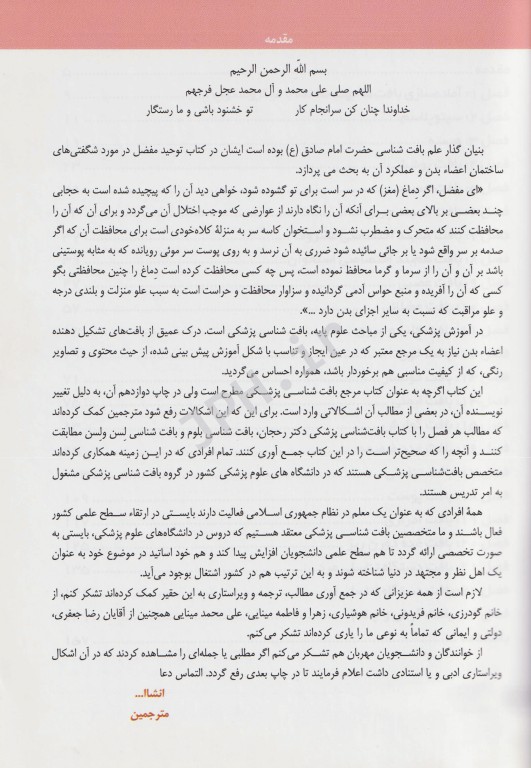 مقدمه
بسم الله الرحمن الرحیم
اللهم صلی علی محمد و آل محمد عجل فرجهم
خداوندا چنان کن سرانجام کار تو خشنود باشی و ما رستگار
بنیان گذار علم بافت شناسی حضرت امام صادق (ع) بوده است ایشان در کتاب توحید مفضل در مورد شگفتی‌های
ساختمان اعضاء بدن و عملکرد آن به بحث می پردازد.
«ای مفضل، اگر دِماغ (مغز) که در سر است برای تو گشوده شود، خواهی دید آن را که پیچیده شده است به حجابی
چند بعضی بر بالای بعضی برای آنکه آن را نگاه دارند از عوارضی که موجب اختلال آن می‌گردد و برای آن که آن را
محافظت کنند که متحرک و مضطرب نشود و استخوان کاسه سر به منزلهٔ کلاه‌خودی است برای محافظت آن که اگر
صدمه بر سر واقع شود یا بر جائی سائیده شود ضرری به آن نرسد و به روی پوست سر موئی رویانده که به مثابه پوستینی
باشد بر آن و آن را از سرما و گرما محافظ نموده است، پس چه کسی محافظت کرده است دِماغ را چنین محافظتی بگو
کسی که آن را آفریده و منبع حواس آدمی گردانیده و سزاوار محافظت و حراست است به سبب علو منزلت و بلندی درجه
و علو مراقبت که نسبت به سایر اجزای بدن دارد ...».
در آموزش پزشکی، یکی از مباحث علوم پایه، بافت شناسی پزشکی است. درک عمیق از بافت‌های تشکیل دهنده
اعضاء بدن نیاز به یک مرجع معتبر که در عین ایجاز و تناسب با شکل آموزش پیش بینی شده، از حیث محتوی و تصاویر
رنگی، که از کیفیت مناسبی هم برخوردار باشد، همواره احساس می‌گردید.
این کتاب اگرچه به عنوان کتاب مرجع بافت شناسی پزشکی مطرح است ولی در چاپ دوازدهم آن، به دلیل تغییر
نویسنده آن، در بعضی از مطالب آن اشکالاتی وارد است. برای این که این اشکالات رفع شود مترجمین کمک کرده‌اند
که مطالب هر فصل را با کتاب بافت‌شناسی پزشکی دکتر رحجان، بافت شناسی بلوم و بافت شناسی لِسن ولسن مطابقت
کنند و آنچه را که صحیح‌تر است را در این کتاب جمع آوری کنند. تمام افرادی که در این زمینه همکاری کرده‌اند
متخصص بافت‌شناسی پزشکی هستند که در دانشگاه های علوم پزشکی کشور در گروه بافت شناسی پزشکی مشغول
به امر تدریس هستند.
همهٔ افرادی که به عنوان یک معلم در نظام جمهوری اسلامی فعالیت دارند بایستی در ارتقاء سطح علمی کشور
فعال باشند و ما متخصصین بافت شناسی پزشکی معتقد هستیم که دروس در دانشگاه‌های علوم پزشکی، بایستی به
صورت تخصصی ارائه گردد تا هم سطح علمی دانشجویان افزایش پیدا کند و هم خود اساتید در موضوع خود به عنوان
یک اهل نظر و مجتهد در دنیا شناخته شوند و به این ترتیب هم در کشور اشتغال بوجود می‌آید.
لازم است از همه عزیزانی که در جمع آوری مطالب، ترجمه و ویراستاری به این حقیر کمک کرده‌اند تشکر کنم، از
خانم گودرزی، خانم فریدونی، خانم هوشیاری، زهرا و فاطمه مینایی، علی محمد مینایی همچنین از آقایان رضا جعفری،
دولتی و ایمانی که تماماً به نوعی ما را یاری کرده‌اند تشکر می‌کنم.
از خوانندگان و دانشجویان مهربان هم تشکر می‌کنم اگر مطلبی یا جمله‌ای را مشاهده کردند که در آن اشکال
ویراستاری ادبی و یا استنادی داشت اعلام فرمایند تا در چاپ بعدی رفع گردد. التماس دعا
انشاا...
مترجمین